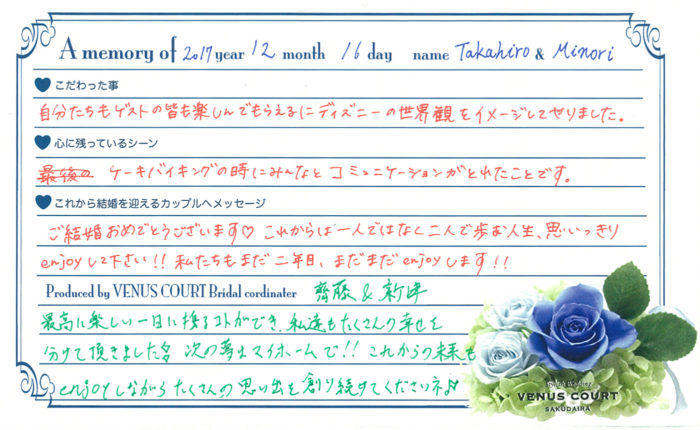 A memory of 2017 year 12 month 16 day name Takahiro & Minori
こだわった事
自分たちもゲストの皆も楽しんでもらえるにディズニーの世界観をイメージしてやりました。
心に残っているシーン
最後の ケーキバイキングの時にみ〜なとコミュニケーションがとれたことです。
これから結婚を迎えるカップルへメッセージ
ご結婚おめでとうございます♡ これからは一人ではなく二人で歩む人生、思いっきり
enjoyして下さい!! 私たちもまだ二年目、まだまだenjoyします!!
Produced by VENUS COURT Bridal cordinater 齊藤 & 新
最高に楽しい一日に携るコトができ、私達もたくさんの幸せを
分けて頂きました 次の夢はマイホームで!! これからの未来も
enjoyしながらたくさんの思い出を創り続けてくださいネ♪
VENUS COURT
SAKUDAIRA